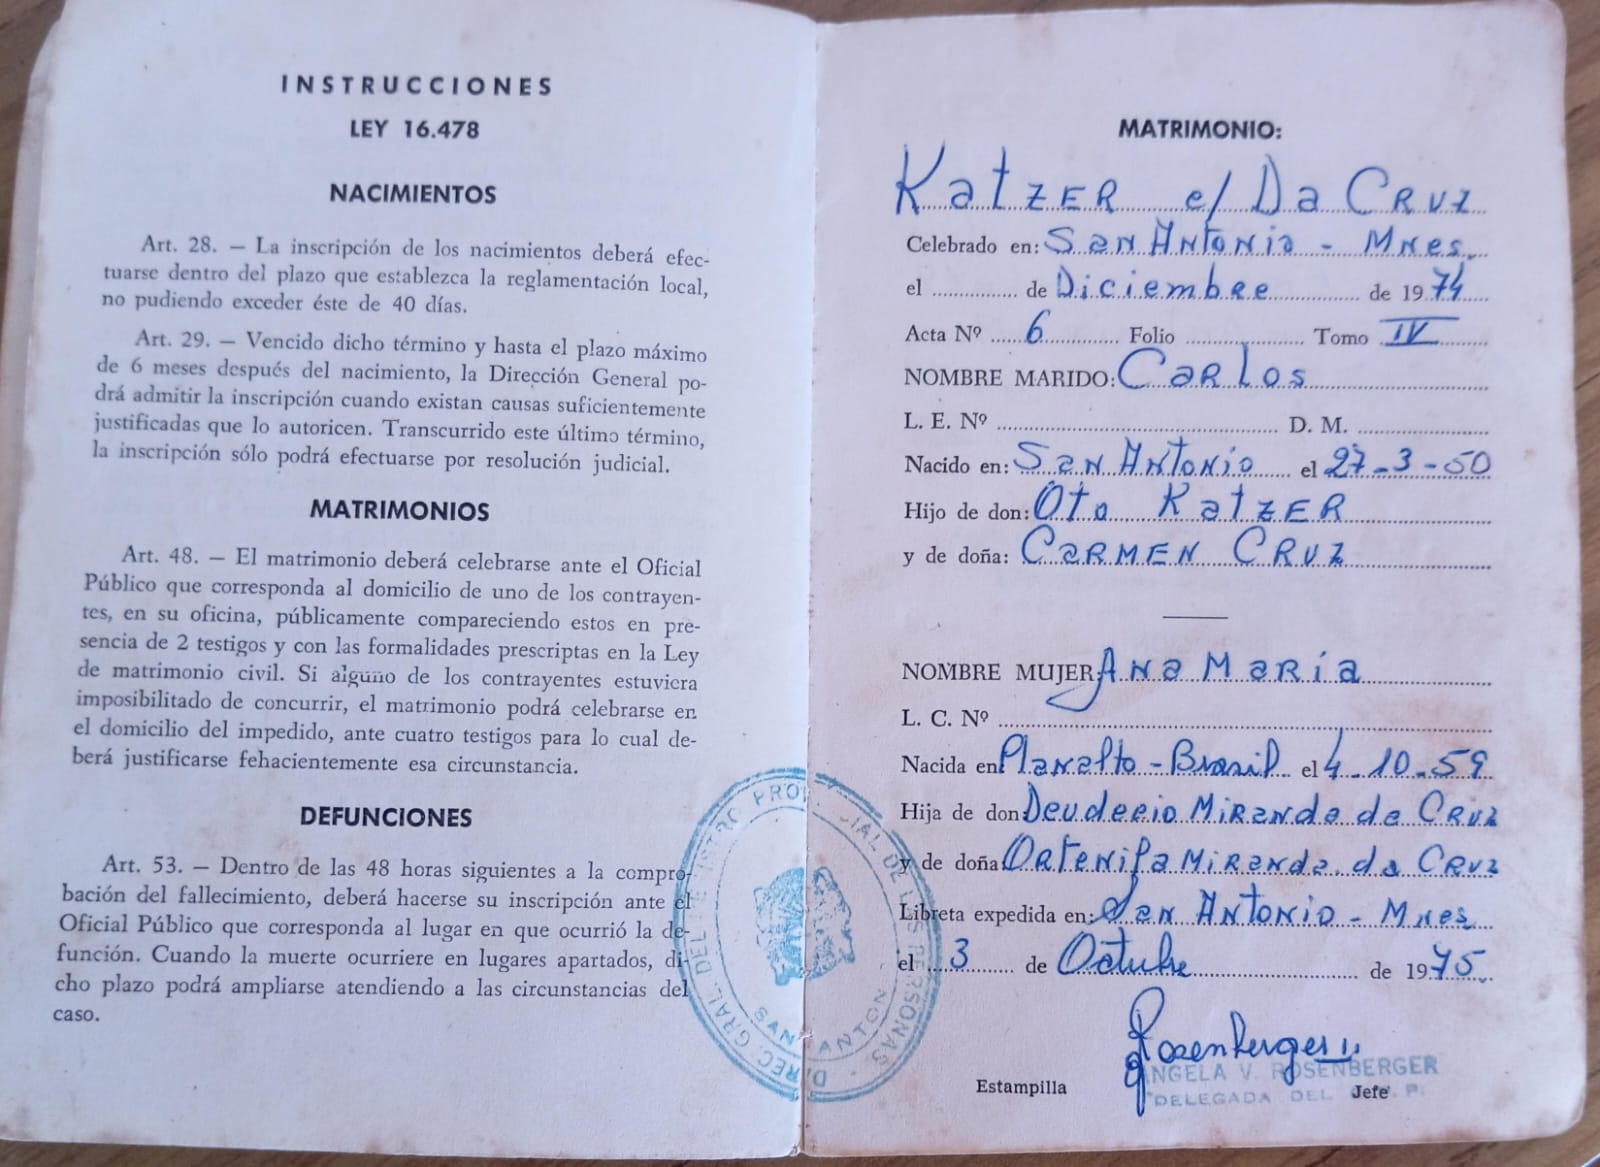 INSTRUCCIONES
LEY 16.478
NACIMIENTOS
Art. 28. — La inscripción de los nacimientos deberá efec-
tuarse dentro del plazo que establezca la reglamentación local,
no pudiendo exceder éste de 40 días.
Art. 29. — Vencido dicho término y hasta el plazo máximo
de 6 meses después del nacimiento, la Dirección General po-
drá admitir la inscripción cuando existan causas suficientemente
justificadas que lo autoricen. Transcurrido este último término,
la inscripción sólo podrá efectuarse por resolución judicial.
MATRIMONIOS
Art. 48. — El matrimonio deberá celebrarse ante el Oficial
Público que corresponda al domicilio de uno de los contrayen-
tes, en su oficina, públicamente compareciendo estos en pre-
sencia de 2 testigos y con las formalidades prescriptas en la Ley
de matrimonio civil. Si alguno de los contrayentes estuviera
imposibilitado de concurrir, el matrimonio podrá celebrarse en
el domicilio del impedido, ante cuatro testigos para lo cual de-
berá justificarse fehacientemente esa circunstancia.
DEFUNCIONES
Art. 53. — Dentro de las 48 horas siguientes a la compro-
bación del fallecimiento, deberá hacerse su inscripción ante el
Oficial Público que corresponda al lugar en que ocurrió la de-
función. Cuando la muerte ocurriere en lugares apartados, di-
cho plazo podrá ampliarse atendiendo a las circunstancias del
caso.
MATRIMONIO:
Katzer c/ Da Cruz
Celebrado en: San Antonio - Mnes.
el de Diciembre de 1974
Acta Nº 6 Folio Tomo IV
NOMBRE MARIDO: Carlos
L. E. Nº D. M.
Nacido en: San Antonio el 27-3-50
Hijo de don: Oto Katzer
y de doña: Carmen Cruz
NOMBRE MUJER: Ana Maria
L. C. Nº
Nacida en Planalto - Brasil el 4-10-59
Hija de don Miranda da Cruz
y de doña Miranda da Cruz
Libreta expedida en: San Antonio - Mnes
el 3 de Octubre de 1975
Rosenberger
ANGELA V. ROSENBERGER
DELEGADA DEL R. P.
Estampilla Jefe
DIREC. GRAL. DEL REGISTRO PROVINCIAL DE LAS PERSONAS
SAN ANTONIO